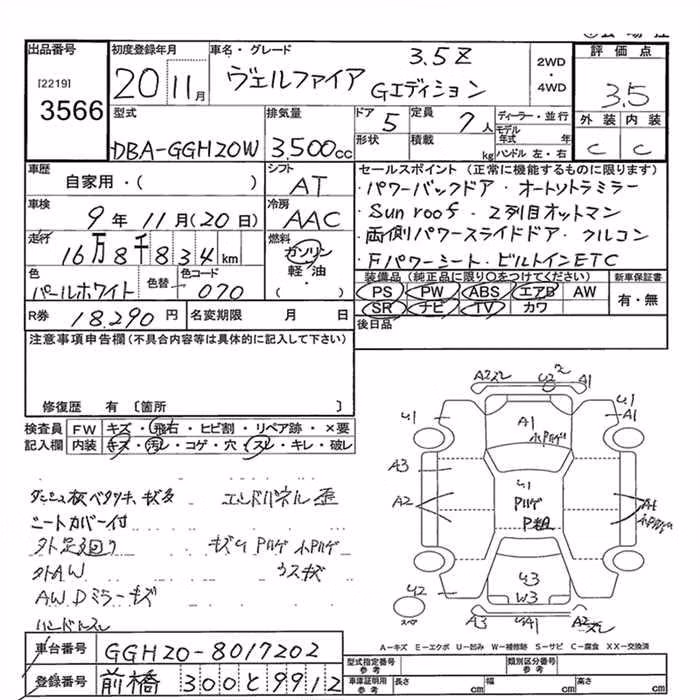 出品番号 初度登録年月 車名・グレード 2WD・4WD 評価点
[2219] 3566 20 11月 ヴェルファイア 3.5Z Gエディション 3.5
型式 排気量 ドア 5 定員 7人 ディーラー・並行 外装 内装
DBA-GGH20W 3,500cc 形状 積載 kg モデル年式 年 ハンドル 左・右 C C
車歴 シフト セールスポイント (正常に機能するものに限ります)
自家用・( ) AT ・パワーバックドア・オートソトラミラー
車検 冷房 ・Sun roof・2列目オットマン
9年11月(20日) AAC ・両側パワースライドドア・クルコン
走行 16万8千834km 燃料 ガソリン 軽・油 ( ) ・Fパワーシート・ビルトインETC
色 色替 色コード 装備品 (純正品に限り○をつけてください) 新車保証書
パールホワイト 070 PS PW ABS エアB AW 有・無
R券 18,290円 名変期限 月 日 SR ナビ TV カワ
後日品
注意事項申告欄(不具合内容等は具体的に記入して下さい)
修復歴 有 〔箇所 〕
検査員 FW キズ・飛石・ヒビ割・リペア跡・×要
記入欄 内装 キズ・汚レ・コゲ・穴・スレ・キレ・破レ
エンドパネル歪
シートカバー付
外足廻り キズU Pハゲ 小Pハゲ
外AW ウスキズ
AW Dミラーキズ
ハンドルスレ
A2スレ U2 A1
U1 A1 U1 A1
小Pハゲ
A3 U1
A2 Pハゲ A1
P粗 小Pハゲ
U2 U3
W3
スペア A3 UA1 A2スレ
A-キズ E-エクボ U-凹み W-補修跡 S-サビ C-腐食 XX-交換済
車台番号 GGH20-8017202 型式指定番号 参考 類別区分番号 参考
登録番号 前橋 300と9912 車庫証明用 参考 長さ cm 幅 cm 高さ cm